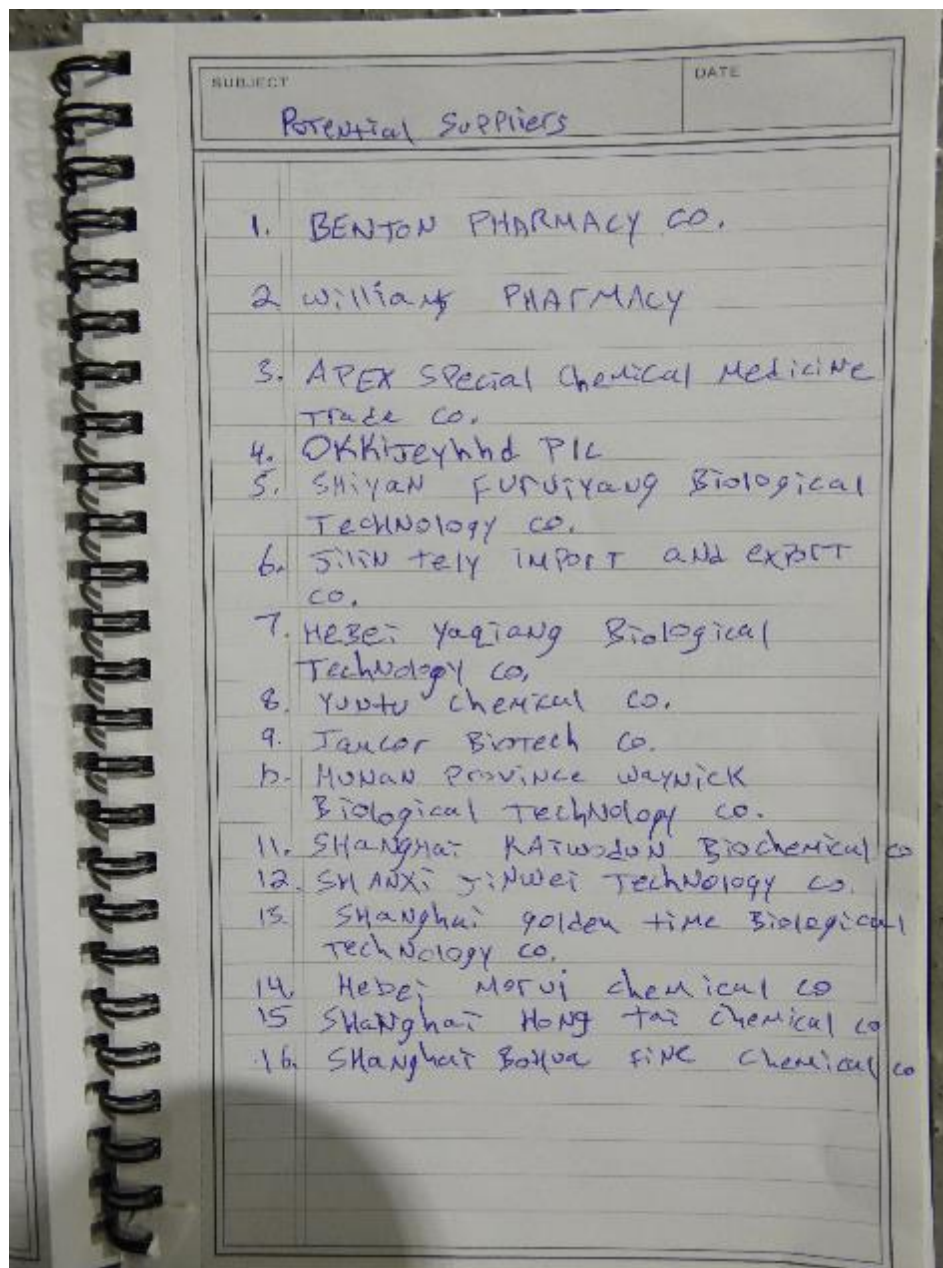 SUBJECT
DATE
Potential Suppliers
1. BENTON PHARMACY CO.
2 PHArMACY
3. APEX Special Chemical Medicine
Trade Co.
4. OKKIJeyhhd Plc
5. SHiyan Furuiyang Biological
TecHNology co.
6. Jilin tely import and export
co.
7. HeBei Yaqiang Biological
TechNology co.
8. Yuntu chemical co.
9. Jancor Biotech Co.
10. HuNan ProviNce WayNick
Biological TechNology co.
11. SHangHai KAiwodun Biochemical co
12. SHANXi JiNwei TechNology co.
13. SHaNghai golden time Biological
TechNology co.
14. Hebei Morui chemical co
15 SHaNghai HoNg tai Chemical co
16. SHanghai BoHua fiNe Chemical co